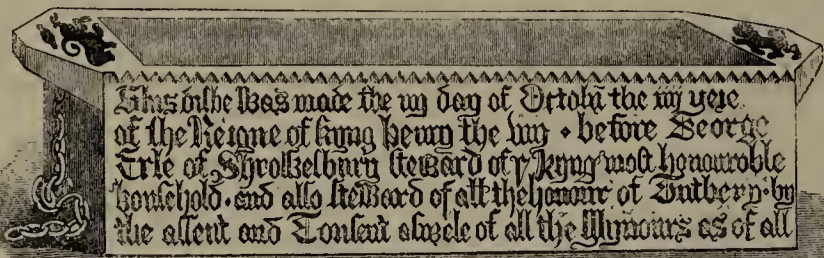 This dishe was made the day of Octobr the iiij yere
of the Reigne of kyng henry the viij · before George
Erle of Shrowesbury steward of yͤ kyng most honourable
household · and also steward of all the honour of Tutbery · by
the assent and Consent aswele of all the Mynours as of all